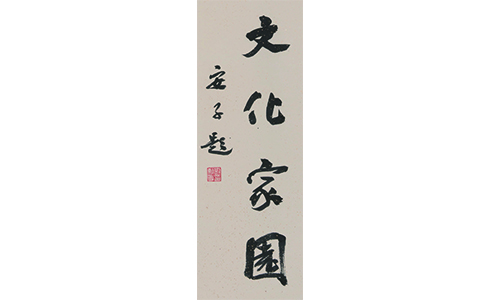 文化家園
安子題